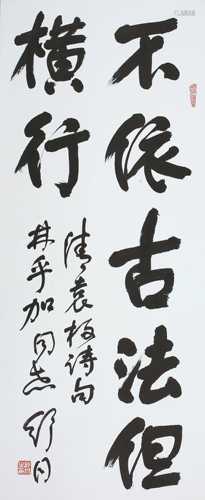 不依古法但
橫行
清袁枚诗句
林乎加同志 舒同